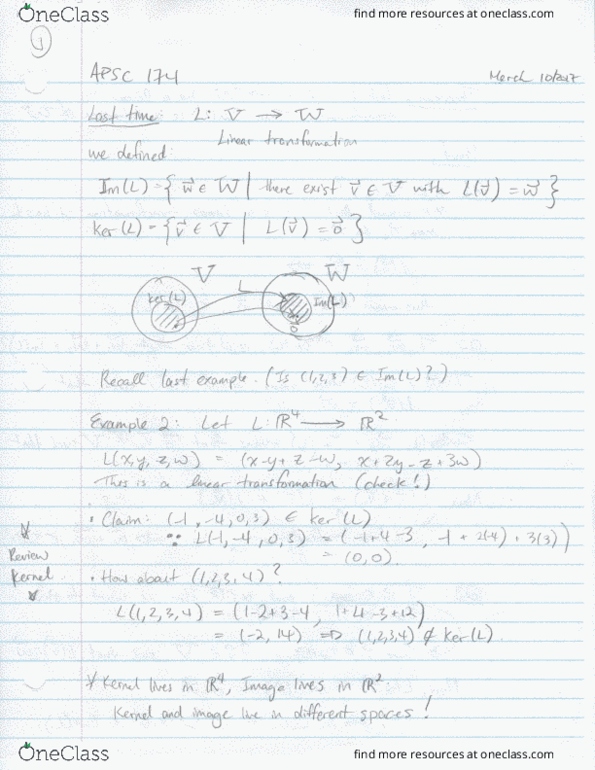 OneClass
find more resources at oneclass.com
1
APSC 174
March 10/2017
Last time: L: V → W
Linear transformation
we defined:
Im(L) = { w⃗ ∈ W | there exist v⃗ ∈ V with L(v⃗) = w⃗ }
ker(L) = { v⃗ ∈ V | L(v⃗) = 0⃗ }
V
W
ker(L)
L
Im(L)
0
Recall last example. (Is (1,2,3) ∈ Im(L)?)
Example 2: Let L: ℝ⁴ → ℝ²
L(x,y,z,w) = (x-y+z-w, x+2y-z+3w)
This is a linear transformation (check!)
• Claim: (-1,-4,0,3) ∈ ker(L)
∵ L(-1,-4,0,3) = (-1+4-3, -1+2(-4)+3(3))
= (0,0).
* Review kernel *
• How about (1,2,3,4)?
L(1,2,3,4) = (1-2+3-4, 1+4-3+12)
= (-2,14) ⇒ (1,2,3,4) ∉ ker(L).
* Kernel lives in ℝ⁴, Image lives in ℝ².
Kernel and image live in different spaces!
OneClass
find more resources at oneclass.com